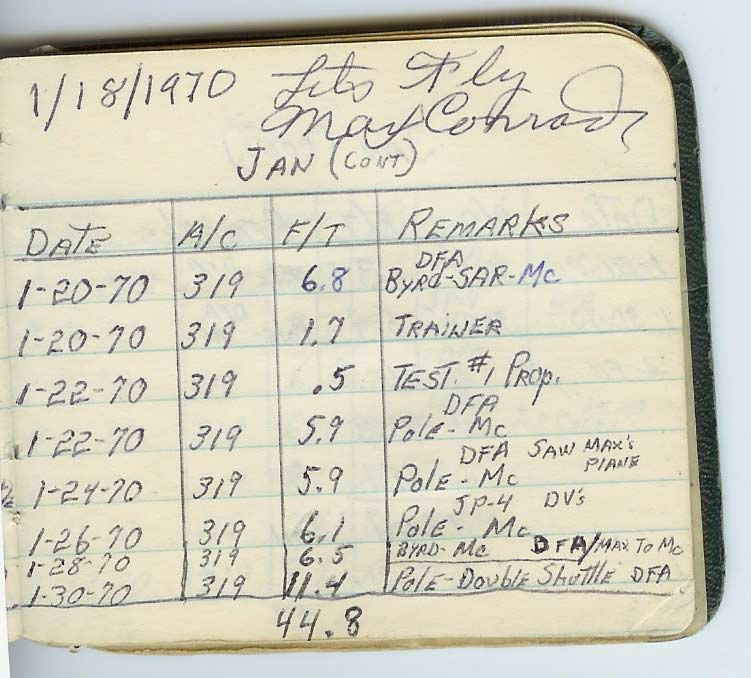 1/18/1970 Lets Fly
Max Conrad
JAN (CONT)
DATE A/C F/T REMARKS
DFA
1-20-70 319 6.8 BYRD-SAR-Mc
1-20-70 319 1.7 TRAINER
1-22-70 319 .5 TEST. #1 PROP.
DFA
1-22-70 319 5.9 Pole - Mc
DFA SAW MAX'S
PLANE
1-24-70 319 5.9 Pole - Mc
JP-4 DV's
1-26-70 319 6.1 Pole - Mc
1-28-70 319 6.5 BYRD-Mc DFA/MAX TO Mc
1-30-70 319 11.4 Pole-Double Shuttle DFA
44.8